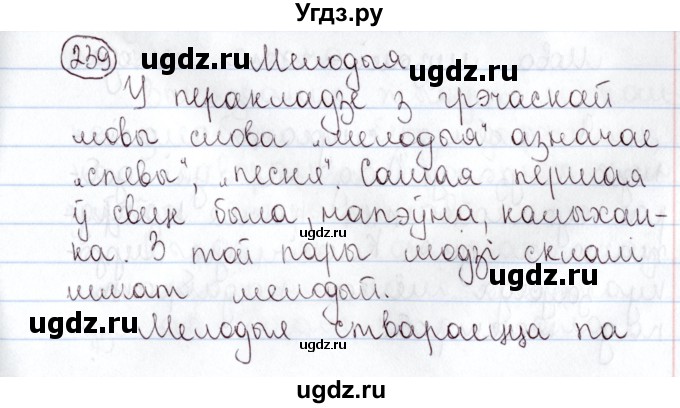 Угдз.ру
239 Мелодыя
У перакладзе з грэчаскай
мовы слова „мелодыя“ азначае
„спевы“, „песня“. Самая першая
ў свеце была, напэўна, калыхан-
ка. З той пары людзі склалі
шмат мелодый.
Мелодыя ствараецца па
ugdz.ru
ugdz.ru
ugdz.ru
ugdz.ru
ugdz.ru
ugdz.ru
ugdz.ru
ugdz.ru
ugdz.ru
ugdz.ru